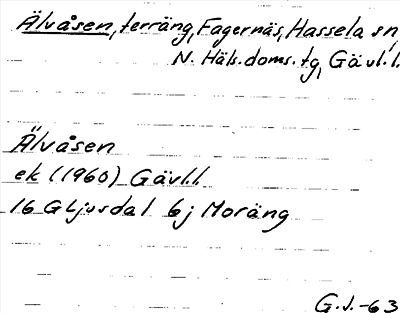 Älvåsen, terräng, Fagernäs, Hassela sn,
N. Häls. doms. tg, Gävl. l.
Älvåsen
ek (1960) Gävl.l.
16 G Ljusdal 6j Moräng
G.J.-63